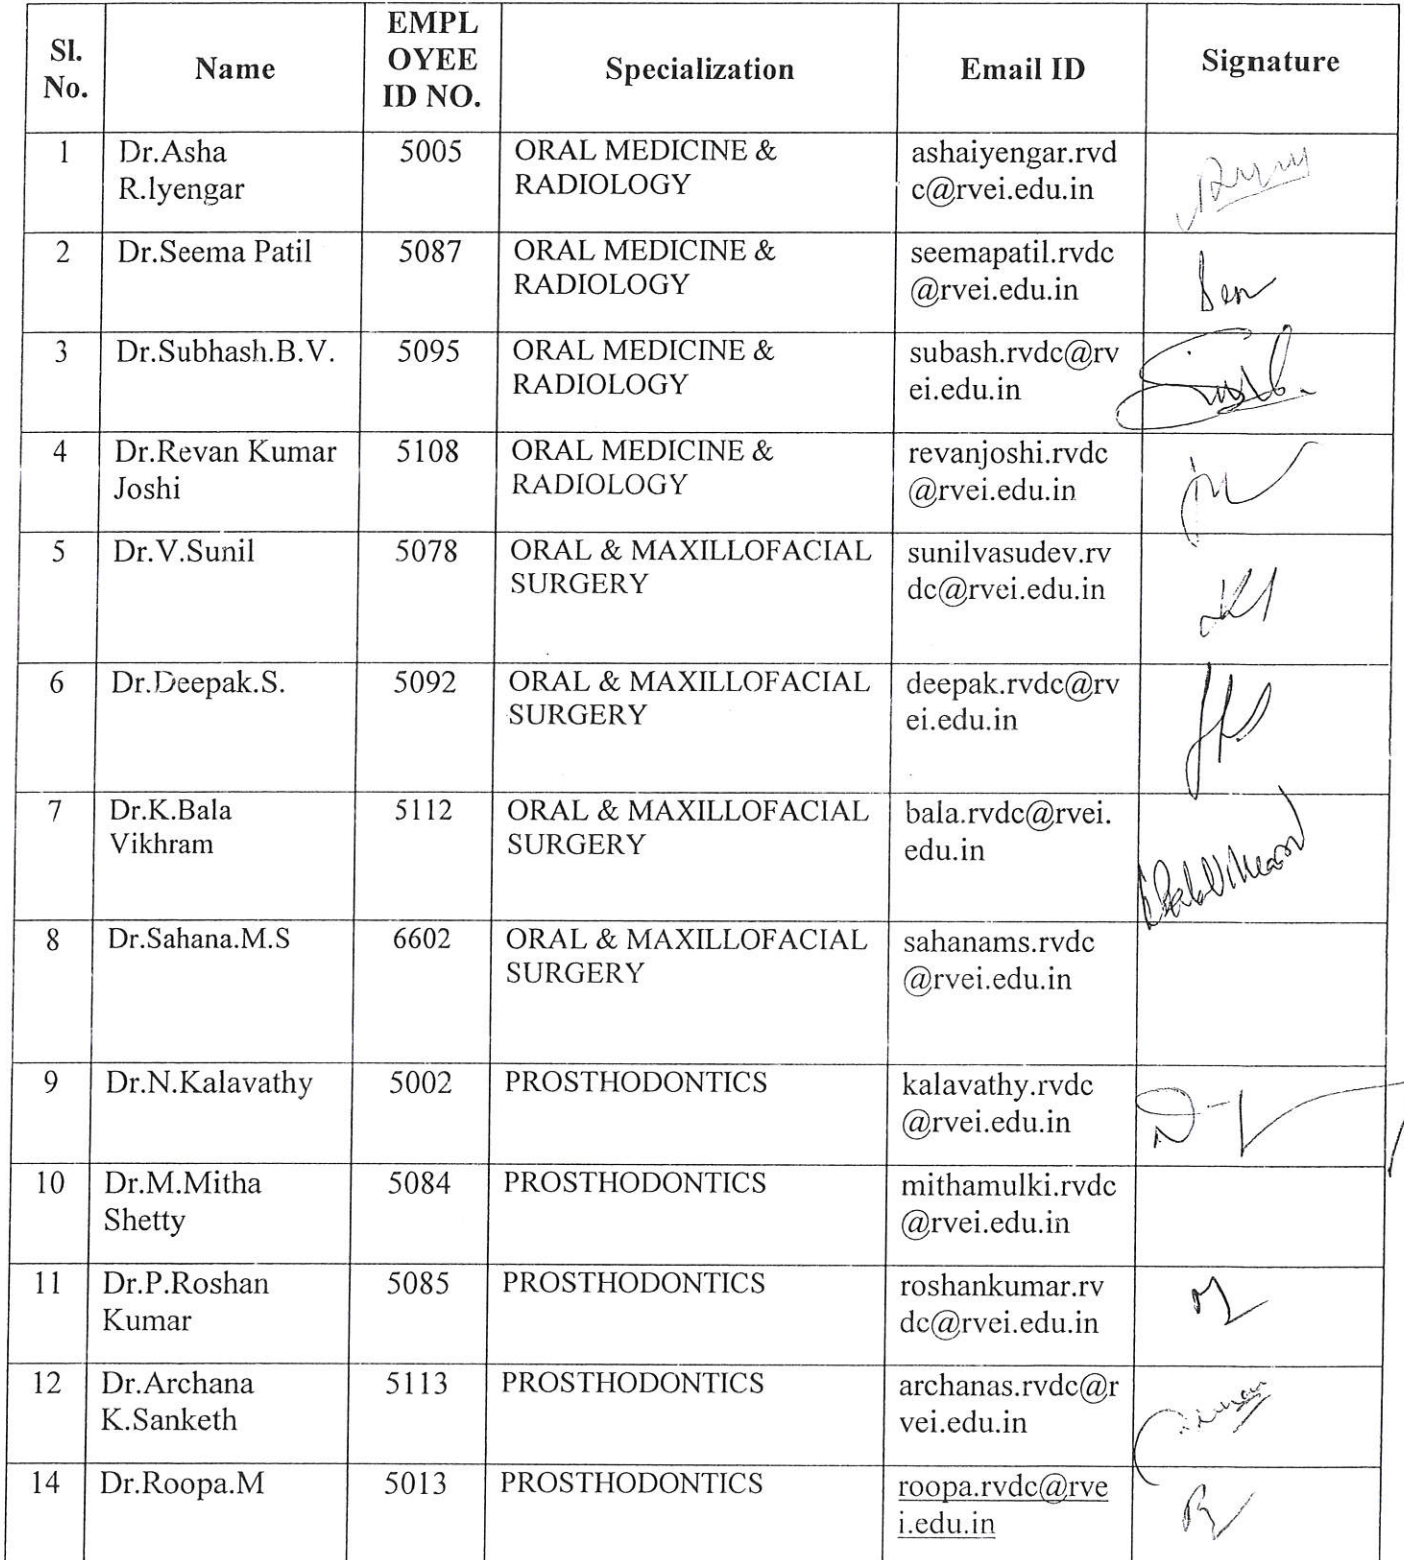 Sl.
No.
Name
EMPL
OYEE
ID NO.
Specialization
Email ID
Signature
1
Dr.Asha
R.Iyengar
5005
ORAL MEDICINE &
RADIOLOGY
ashaiyengar.rvd
c@rvei.edu.in
2
Dr.Seema Patil
5087
ORAL MEDICINE &
RADIOLOGY
seemapatil.rvdc
@rvei.edu.in
3
Dr.Subhash.B.V.
5095
ORAL MEDICINE &
RADIOLOGY
subash.rvdc@rv
ei.edu.in
4
Dr.Revan Kumar
Joshi
5108
ORAL MEDICINE &
RADIOLOGY
revanjoshi.rvdc
@rvei.edu.in
5
Dr.V.Sunil
5078
ORAL & MAXILLOFACIAL
SURGERY
sunilvasudev.rv
dc@rvei.edu.in
6
Dr.Deepak.S.
5092
ORAL & MAXILLOFACIAL
SURGERY
deepak.rvdc@rv
ei.edu.in
7
Dr.K.Bala
Vikhram
5112
ORAL & MAXILLOFACIAL
SURGERY
bala.rvdc@rvei.
edu.in
8
Dr.Sahana.M.S
6602
ORAL & MAXILLOFACIAL
SURGERY
sahanams.rvdc
@rvei.edu.in
9
Dr.N.Kalavathy
5002
PROSTHODONTICS
kalavathy.rvdc
@rvei.edu.in
10
Dr.M.Mitha
Shetty
5084
PROSTHODONTICS
mithamulki.rvdc
@rvei.edu.in
11
Dr.P.Roshan
Kumar
5085
PROSTHODONTICS
roshankumar.rv
dc@rvei.edu.in
12
Dr.Archana
K.Sanketh
5113
PROSTHODONTICS
archanas.rvdc@r
vei.edu.in
14
Dr.Roopa.M
5013
PROSTHODONTICS
roopa.rvdc@rve
i.edu.in